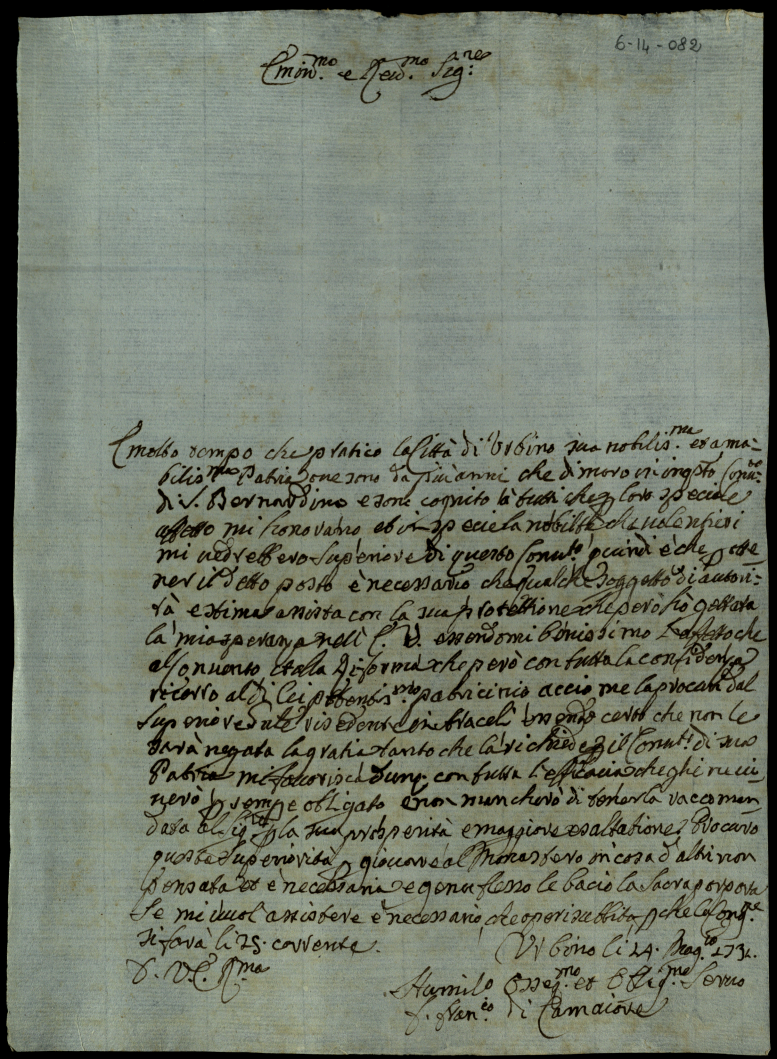 6-14-082
Emin.mo e Reu.mo Sig.re
È molto tempo che pratico la Città di Urbino sua nobilis.ma et ama=
bilis.ma Patria, oue sono da più anni che dimoro in questo Conu.to
di S. Bernardino e sono cognito à tutti che p loro speciale
affetto mi honorano et in specie la nobiltà che uolentieri
mi uedrebbero Superiore di questo Conu.to quindi è che p otte=
ner il detto posto è necessario che qualche soggetto di autori=
tà e stima assista con la sua protettione che però hò gettata
la mia speranza nell' E. V. essendomi benissimo l'affetto che
al Conuento et alla Riforma che però con tutta la confidenza
ricorro al di lei potentis.mo patricinio acciò me la procuri dal
Superiore residente in Araceli essendo certo che non le
sarà negata la gratia tanto che la richiede p il Conu.to di sua
Patria mi fauorisca dunq. con tutta l'efficacia che gli ne ui=
uerò p sempre obligato e non mancherò di tenerla raccoman=
data al Sig.re p la sua prosperità e maggiore esaltatione. Procuro
questa superiorità p giouare al Monastero in cosa d'altri non
pensata et è necessaria e genuflesso le bacio la Sacra porpora
Se mi uuol assistere è necessario che operi subbito p che la Cong.ne
si farà li 25. corrente.
Urbino li 14. Mag.o 1732.
D. V. E. R.ma
Humil.o Osseq.mo et Oblig.mo Seruo
f. Fran.co di Camaiore